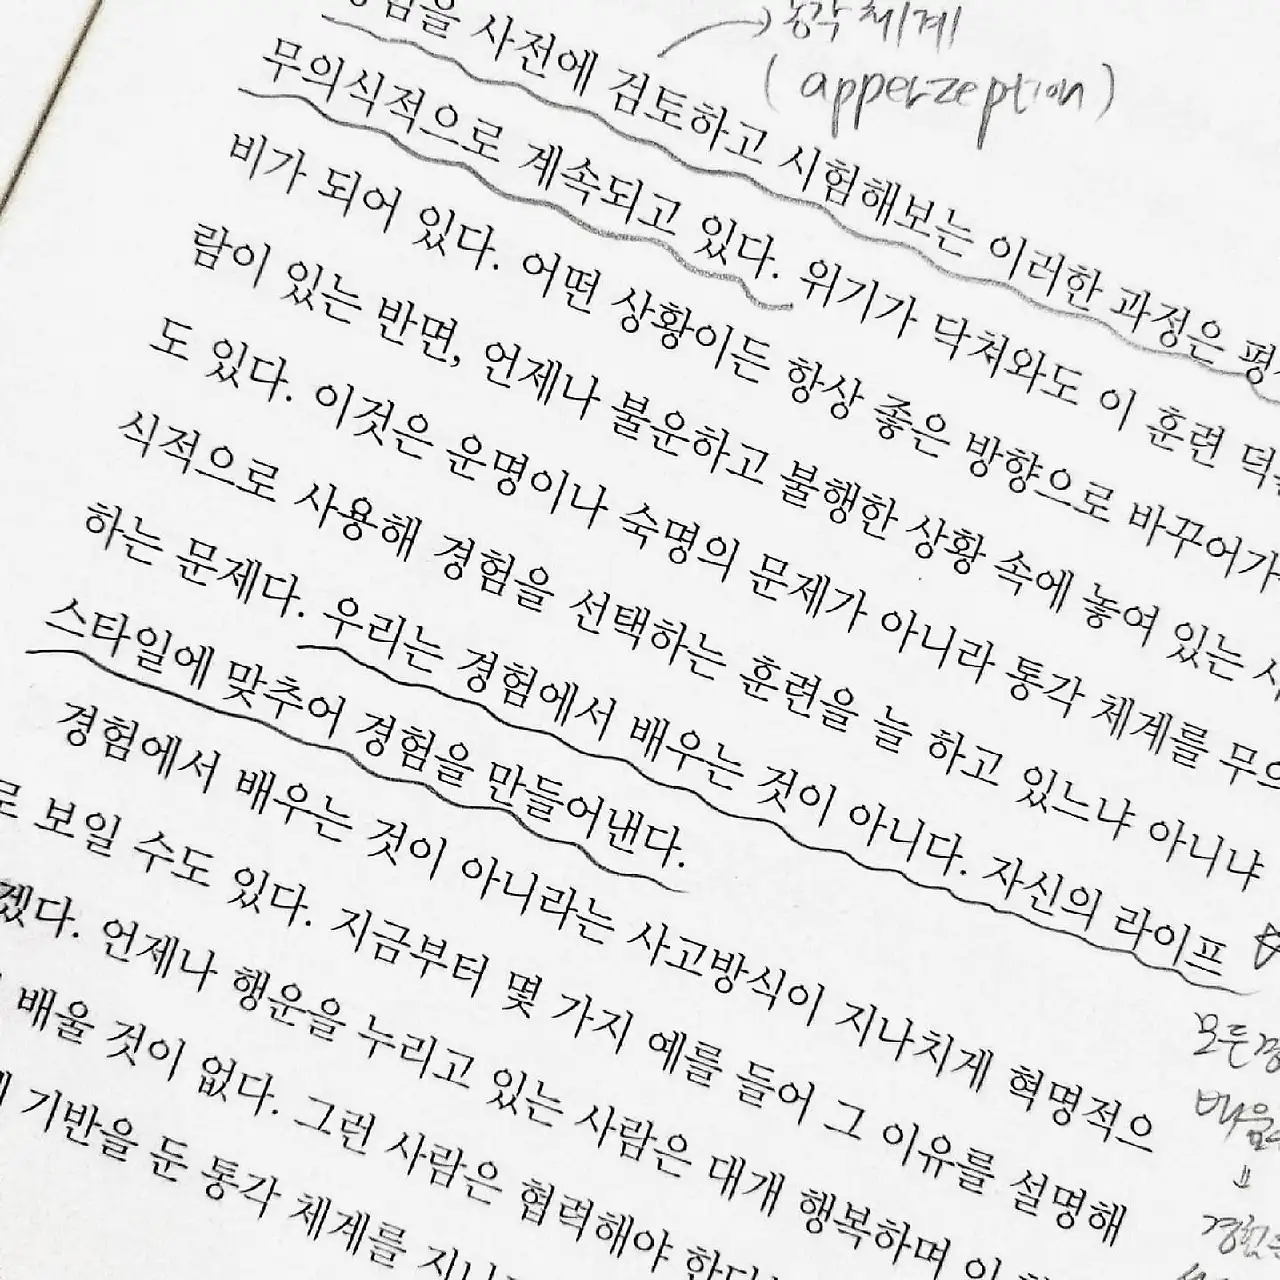 통각체계
(apperzeption)
사전에 검토하고 시험해보는 이러한 과정은
무의식적으로 계속되고 있다. 위기가 닥쳐와도 이 훈련
비가 되어 있다. 어떤 상황이든 항상 좋은 방향으로 바꾸어가
람이 있는 반면, 언제나 불운하고 불행한 상황 속에 놓여 있는
도 있다. 이것은 운명이나 숙명의 문제가 아니라 통각 체계를 무의
식적으로 사용해 경험을 선택하는 훈련을 늘 하고 있느냐 아니냐
하는 문제다. 우리는 경험에서 배우는 것이 아니다. 자신의 라이프
스타일에 맞추어 경험을 만들어낸다.
경험에서 배우는 것이 아니라는 사고방식이 지나치게 혁명적으
로 보일 수도 있다. 지금부터 몇 가지 예를 들어 그 이유를 설명해
겠다. 언제나 행운을 누리고 있는 사람은 대개 행복하며 이
배울 것이 없다. 그런 사람은 협력해야 한다
기반을 둔 통각 체계를
모든
배움
경험